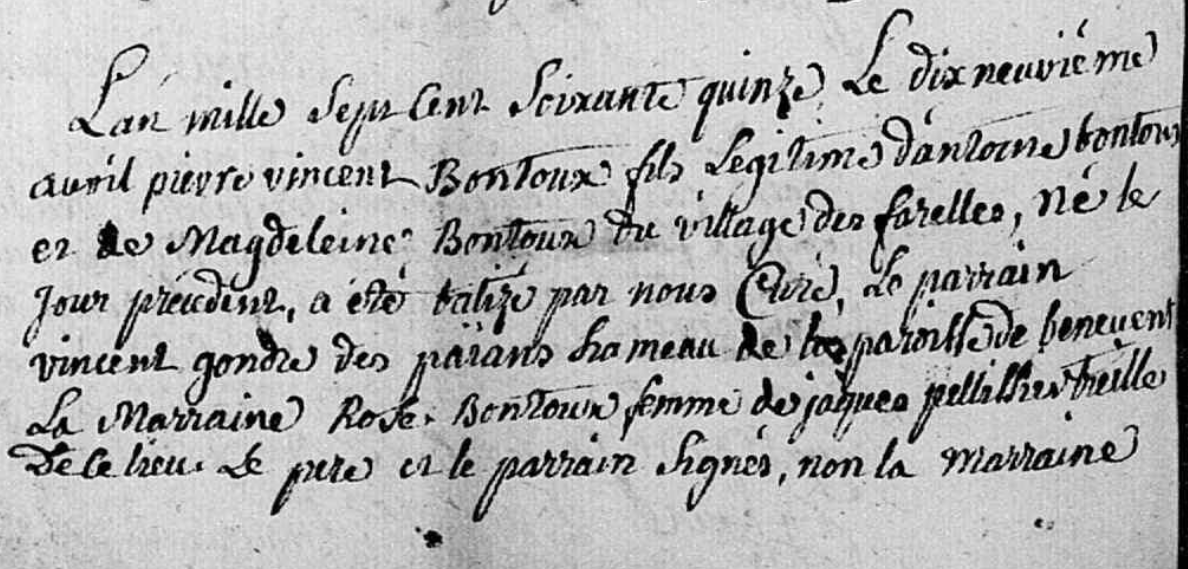 L'an mille Sept Cent Soixante quinze Le dix neuviéme
avril pierre vincent Bontoux fils Legitime d'antoine bontoux
et de Magdeleine Bontoux du village des farelles, Né le
Jour précédent, a été batizé par nous Curé, Le parrain
vincent gondre des païans hameau de la paroisse de benevent
La Marraine Rose Bontoux femme de jaques pellissier
De ce lieu. Le pere et le parrain Signés, non la marraine